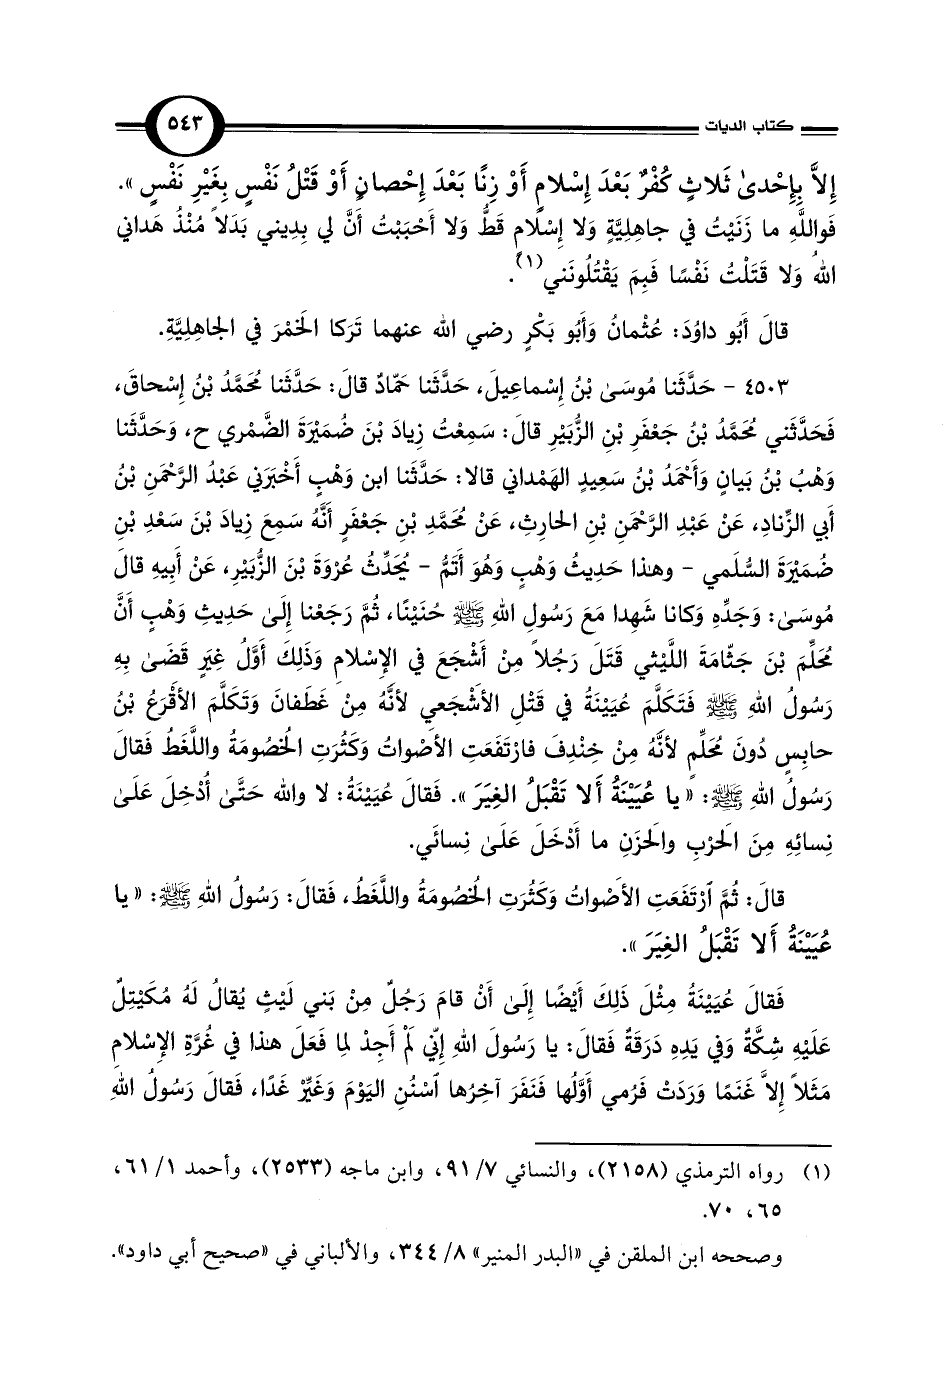 كتاب الديات ٥٤٣
إِلاَّ بِإِحْدىٰ ثَلاثٍ كُفْرٌ بَعْدَ إِسْلامٍ أَوْ زِنًا بَعْدَ إِحْصانٍ أَوْ قَتْلُ نَفْسٍ بِغَيْرِ نَفْسٍ».
فَواللَّهِ ما زَنَيْتُ في جاهِلِيَّةٍ وَلا إِسْلامٍ قَطُّ وَلا أَحْبَبْتُ أَنَّ لي بِدِيني بَدَلاً مُنْذُ هَداني
اللهُ وَلا قَتَلْتُ نَفْسًا فَبِمَ يَقْتُلُونَني(١).
قالَ أَبُو داوُدَ: عُثْمانُ وَأَبُو بَكْرٍ رضي الله عنهما تَرَكا الخَمْرَ في الجاهِلِيَّةِ.
٤٥٠٣ - حَدَّثَنا مُوسَىٰ بْنُ إِسْماعِيلَ، حَدَّثَنا حَمّادٌ قالَ: حَدَّثَنا مُحَمَّدُ بْنُ إِسْحاقَ،
فَحَدَّثَني مُحَمَّدُ بْنُ جَعْفَرِ بْنِ الزُّبَيْرِ قالَ: سَمِعْتُ زِيادَ بْنَ ضُمَيْرَةَ الضَّمْري ح، وَحَدَّثَنا
وَهْبُ بْنُ بَيانٍ وَأَحْمَدُ بْنُ سَعِيدٍ الهَمْداني قالا: حَدَّثَنا ابن وَهْبٍ أَخْبَرَني عَبْدُ الرَّحْمَنِ بْنُ
أَبي الزِّنادِ، عَنْ عَبْدِ الرَّحْمَنِ بْنِ الحارِثِ، عَنْ مُحَمَّدِ بْنِ جَعْفَرٍ أَنَّهُ سَمِعَ زِيادَ بْنَ سَعْدِ بْنِ
ضُمَيْرَةَ السُّلَمي - وهذا حَدِيثُ وَهْبٍ وَهُوَ أَتَمُّ - يُحَدِّثُ عُرْوَةَ بْنَ الزُّبَيْرِ، عَنْ أَبِيهِ قالَ
مُوسَىٰ: وَجَدِّهِ وَكانا شَهِدا مَعَ رَسُولِ اللهِ ﷺ حُنَيْنًا، ثُمَّ رَجَعْنا إِلَىٰ حَدِيثِ وَهْبٍ أَنَّ
مُحَلِّمَ بْنَ جَثّامَةَ اللَّيْثي قَتَلَ رَجُلاً مِنْ أَشْجَعَ في الإِسْلامِ وَذَلِكَ أَوَّلُ غِيَرٍ قَضَىٰ بِهِ
رَسُولُ اللهِ ﷺ فَتَكَلَّمَ عُيَيْنَةُ في قَتْلِ الأَشْجَعي لأَنَّهُ مِنْ غَطَفانَ وَتَكَلَّمَ الأَقْرَعُ بْنُ
حابِسٍ دُونَ مُحَلِّمٍ لأَنَّهُ مِنْ خِنْدِفَ فارْتَفَعَتِ الأَصْواتُ وَكَثُرَتِ الخُصُومَةُ واللَّغَطُ فَقالَ
رَسُولُ اللهِ ﷺ: «يا عُيَيْنَةُ أَلا تَقْبَلُ الغِيَرَ». فَقالَ عُيَيْنَةُ: لا والله حَتَّىٰ أُدْخِلَ عَلَىٰ
نِسائِهِ مِنَ الَحرْبِ والَحزَنِ ما أَدْخَلَ عَلَىٰ نِسائَي.
قالَ: ثُمَّ ٱرْتَفَعَتِ الأَصْواتُ وَكَثُرَتِ الخُصُومَةُ واللَّغَطُ، فَقالَ: رَسُولُ اللهِ ﷺ: «يا
عُيَيْنَةُ أَلا تَقْبَلُ الغِيَرَ».
فَقالَ عُيَيْنَةُ مِثْلَ ذَلِكَ أَيْضًا إِلَىٰ أَنْ قامَ رَجُلٌ مِنْ بَني لَيْثٍ يُقالُ لَهُ مُكَيْتِلٌ
عَلَيْهِ شِكَّةٌ وَفي يَدِهِ دَرَقَةٌ فَقالَ: يا رَسُولَ اللهِ إِنّي لَمْ أَجِدْ لِما فَعَلَ هذا في غُرَّةِ الإِسْلامِ
مَثَلاً إِلاَّ غَنَمًا وَرَدَتْ فَرُمي أَوَّلُها فَنَفَرَ آخِرُها ٱسْنُنِ اليَوْمَ وَغَيِّرْ غَدًا، فَقالَ رَسُولُ اللهِ
(١) رواه الترمذي (٢١٥٨)، والنسائي ٧/ ٩١، وابن ماجه (٢٥٣٣)، وأحمد ١/ ٦١،
٦٥، ٧٠.
وصححه ابن الملقن في «البدر المنير» ٨/ ٣٤٤، والألباني في «صحيح أبي داود».